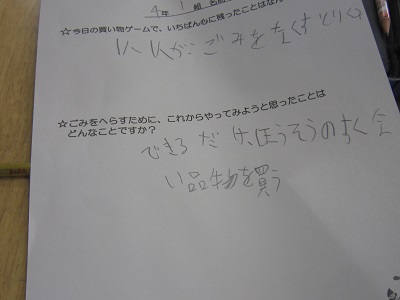 4年 1 組 名前
☆今日の買い物ゲームで、いちばん心に残ったことはなん
ごみをなくす
☆ごみをへらすために、これからやってみようと思ったことは
どんなことですか?
できるだけ、ほうそうのすく
い品物を買う